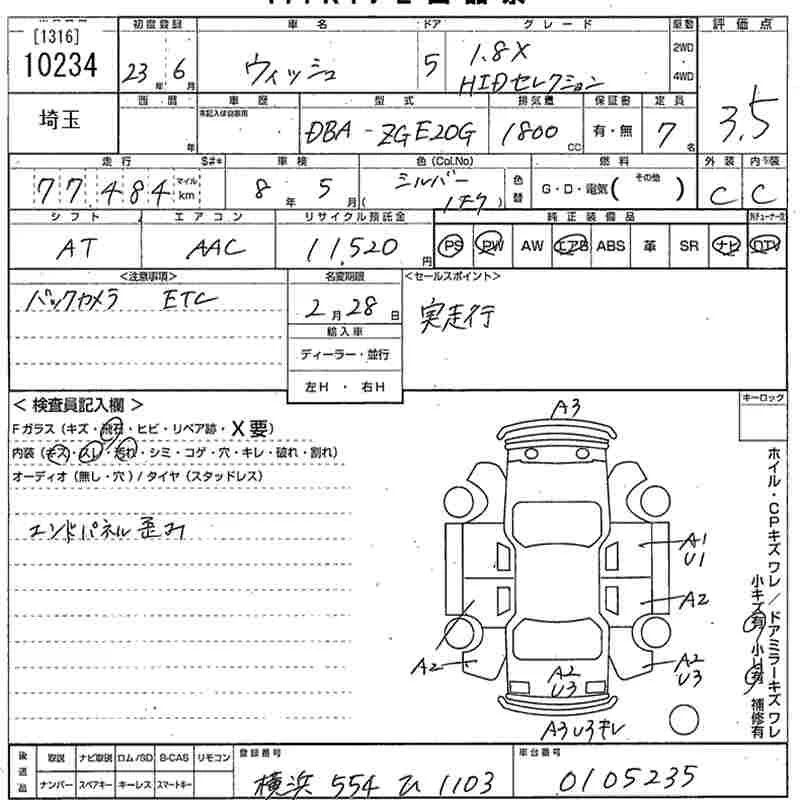 [1316]
10234
埼玉
初度登録
23年 6月
車名
ウィッシュ
ドア
5
グレード
1.8X
HIDセレクション
駆動
2WD
・
4WD
評価点
3.5
西暦
年
車歴
未記入は自家用
型式
DBA-ZGE20G
排気量
1800 CC
保証書
有・無
定員
7名
走行 S#*
77,484 マイル km
車検
8年 5月
色(Col.No)
シルバー
(1F7)
色替
燃料
G・D・電気( その他 )
外装
C
内装
C
シフト
AT
エアコン
AAC
リサイクル預託金
11,520円
純正装備品
PS PW AW エアB ABS 革 SR ナビ DTV
<注意事項>
バックカメラ ETC
名変期限
2月28日
輸入車
ディーラー・並行
左H・右H
<セールスポイント>
実走行
< 検査員記入欄 >
Fガラス(キズ・飛石・ヒビ・リペア跡・X要)
内装(キズ・スレ・汚れ・シミ・コゲ・穴・キレ・破れ・割れ)
オーディオ(無し・穴)/タイヤ(スタッドレス)
エンドパネル歪み
キーロック
A3
A1
U1
A2
A2
A2
U3
A2
U3
A3U3キレ
ホイル・CPキズ ワレ/ドアミラーキズ ワレ
小キズ有 小凹有 補修有
後送品
取説 ナビ取説 ロム/SD B-CAS リモコン
ナンバー スペアキー キーレス スマートキー
登録番号
横浜 554 ひ 1103
車台番号
0105235